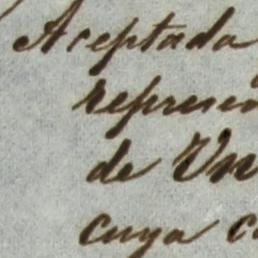 Aceptada
represen
de Un
cuya c